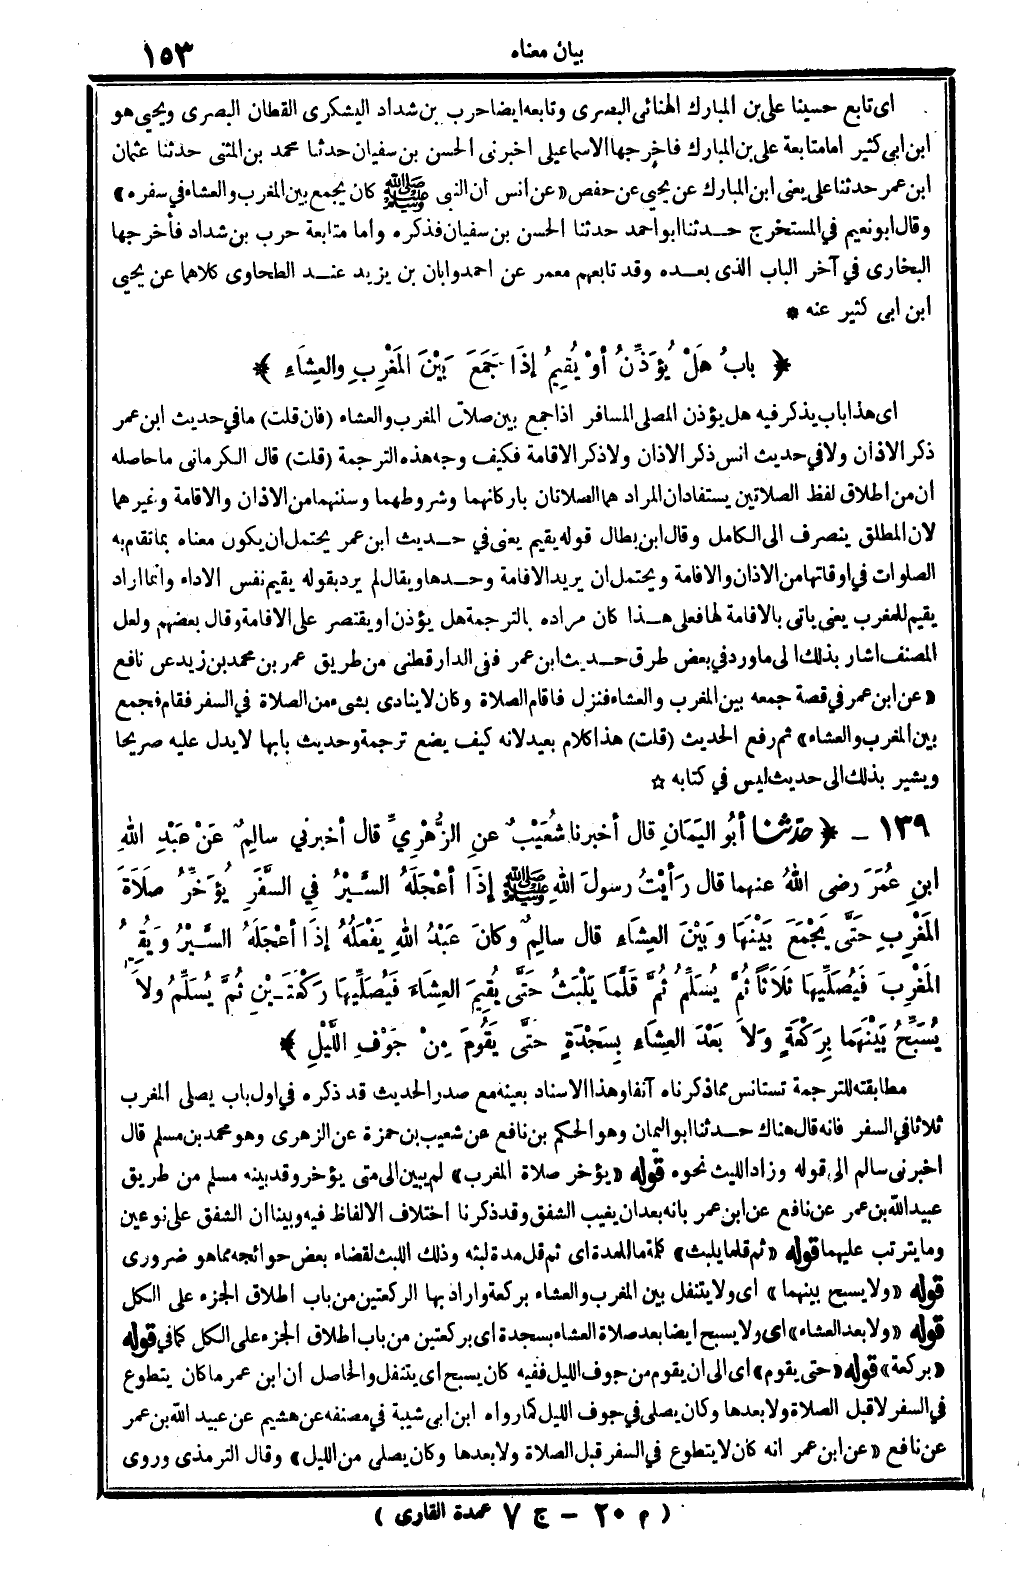 بيان معناه ١٥٣
اى تابع حسينا على بن المبارك الهنائى البصرى وتابعه ايضا حرب بن شداد اليشكرى القطان البصرى ويحيى هو
ابن ابى كثير اما متابعة على بن المبارك فاخرجها الاسماعيلى اخبرنى الحسن بن سفيان حدثنا محمد بن المثنى حدثنا عثمان
ابن عمر حدثنا على يعنى ابن المبارك عن يحيى عن حفص «عن انس ان النبى ﷺ كان يجمع بين المغرب والعشاء فى سفره»
وقال ابو نعيم فى المستخرج حدثنا ابو احمد حدثنا الحسن بن سفيان فذكره واما متابعة حرب بن شداد فأخرجها
البخارى فى آخر الباب الذى بعده وقد تابعهم معمر عن احمد وابان بن يزيد عند الطحاوى كلاهما عن يحيى
ابن ابى كثير عنه *
﴿ بابُ هَلْ يُؤَذِّنُ أوْ يُقِيمُ إذَا جَمَعَ بَيْنَ المَغْرِبِ والعِشَاءِ ﴾
اى هذا باب يذكر فيه هل يؤذن المصلى المسافر اذا جمع بين صلاتى المغرب والعشاء (فان قلت) ما فى حديث ابن عمر
ذكر الاذان ولا فى حديث انس ذكر الاذان ولا ذكر الاقامة فكيف وجه هذه الترجمة (قلت) قال الكرمانى ما حاصله
ان من اطلاق لفظ الصلاتين يستفاد ان المراد هما الصلاتان باركانهما وشروطهما وسننهما من الاذان والاقامة وغيرهما
لان المطلق ينصرف الى الكامل وقال ابن بطال قوله يقيم يعنى فى حديث ابن عمر يحتمل ان يكون معناه بما تقام به
الصلوات فى اوقاتها من الاذان والاقامة ويحتمل ان يريد الاقامة وحدها ويقال لم يرد بقوله يقيم نفس الاداء وانما اراد
يقيم للمغرب يعنى ياتى بالاقامة لها فعلى هذا كان مراده بالترجمة هل يؤذن او يقتصر على الاقامة وقال بعضهم ولعل
المصنف اشار بذلك الى ما ورد فى بعض طرق حديث ابن عمر ففى الدارقطنى من طريق عمر بن محمد بن زيد عن نافع
«عن ابن عمر فى قصة جمعه بين المغرب والعشاء فنزل فاقام الصلاة وكان لا ينادى بشىء من الصلاة فى السفر فقام فجمع
بين المغرب والعشاء» ثم رفع الحديث (قلت) هذا كلام بعيد لانه كيف يضع ترجمة وحديث بابها لا يدل عليه صريحا
ويشير بذلك الى حديث ليس فى كتابه ☆
١٣٩ ــ ﴿ حدّثنا أبُو اليَمَانِ قال أخبرنا شُعَيْبٌ عنِ الزُّهْرِيِّ قال أخبرني سالِمٌ عَنْ عَبْدِ اللهِ
ابنِ عُمَرَ رضى اللهُ عنهما قال رَأَيْتُ رسولَ اللهِ ﷺ إذَا أعْجَلَهُ السَّيْرُ فِي السَّفَرِ يُؤَخِّرُ صَلاَةَ
المَغْرِبِ حَتَّى يَجْمَعَ بَيْنَهَا وَبَيْنَ العِشَاءِ قال سالِمٌ وكانَ عَبْدُ اللهِ يَفْعَلُهُ إذَا أعْجَلَهُ السَّيْرُ وَيُقِيمُ
المَغْرِبَ فَيُصَلِّيهَا ثَلاَثًا ثُمَّ يُسَلِّمُ ثُمَّ قَلَّمَا يَلْبَثُ حَتَّى يُقِيمَ العِشَاءَ فَيُصَلِّيهَا رَكْعَتَيْنِ ثُمَّ يُسَلِّمُ ولاَ
يُسَبِّحُ بَيْنَهُمَا بِرَكْعَةٍ وَلاَ بَعْدَ العِشَاءِ بِسَجْدَةٍ حَتَّى يَقُومَ مِنْ جَوْفِ اللَّيْلِ ﴾
مطابقته للترجمة تستانس مما ذكرناه آنفا وهذا الاسناد بعينه مع صدر الحديث قد ذكره فى اول باب يصلى المغرب
ثلاثا فى السفر فانه قال هناك حدثنا ابو اليمان وهو الحكم بن نافع عن شعيب بن حمزة عن الزهرى وهو محمد بن مسلم قال
اخبرنى سالم الى قوله وزاد الليث نحوه قوله «يؤخر صلاة المغرب» لم يبين الى متى يؤخر وقد بينه مسلم من طريق
عبيد الله بن عمر عن نافع عن ابن عمر بانه بعد ان يغيب الشفق وقد ذكرنا اختلاف الالفاظ فيه وبينا ان الشفق على نوعين
وما يترتب عليهما قوله «ثم قلما يلبث» كلمة ما للمدة اى ثم قل مدة لبثه وذلك اللبث لقضاء بعض حوائجه مما هو ضرورى
قوله «ولا يسبح بينهما» اى ولا يتنفل بين المغرب والعشاء بركعة واراد بها الركعتين من باب اطلاق الجزء على الكل
قوله «ولا بعد العشاء» اى ولا يسبح ايضا بعد صلاة العشاء بسجدة اى بركعتين من باب اطلاق الجزء على الكل كما فى قوله
«بركعة» قوله «حتى يقوم» اى الى ان يقوم من جوف الليل ففيه كان يسبح اى يتنفل والحاصل ان ابن عمر ما كان يتطوع
فى السفر لا قبل الصلاة ولا بعدها وكان يصلى فى جوف الليل كما رواه ابن ابى شيبة فى مصنفه عن هشيم عن عبيد الله بن عمر
عن نافع «عن ابن عمر انه كان لا يتطوع فى السفر قبل الصلاة ولا بعدها وكان يصلى من الليل» وقال الترمذى وروى
( م ٢٠ ــ ج ٧ عمدة القارى )